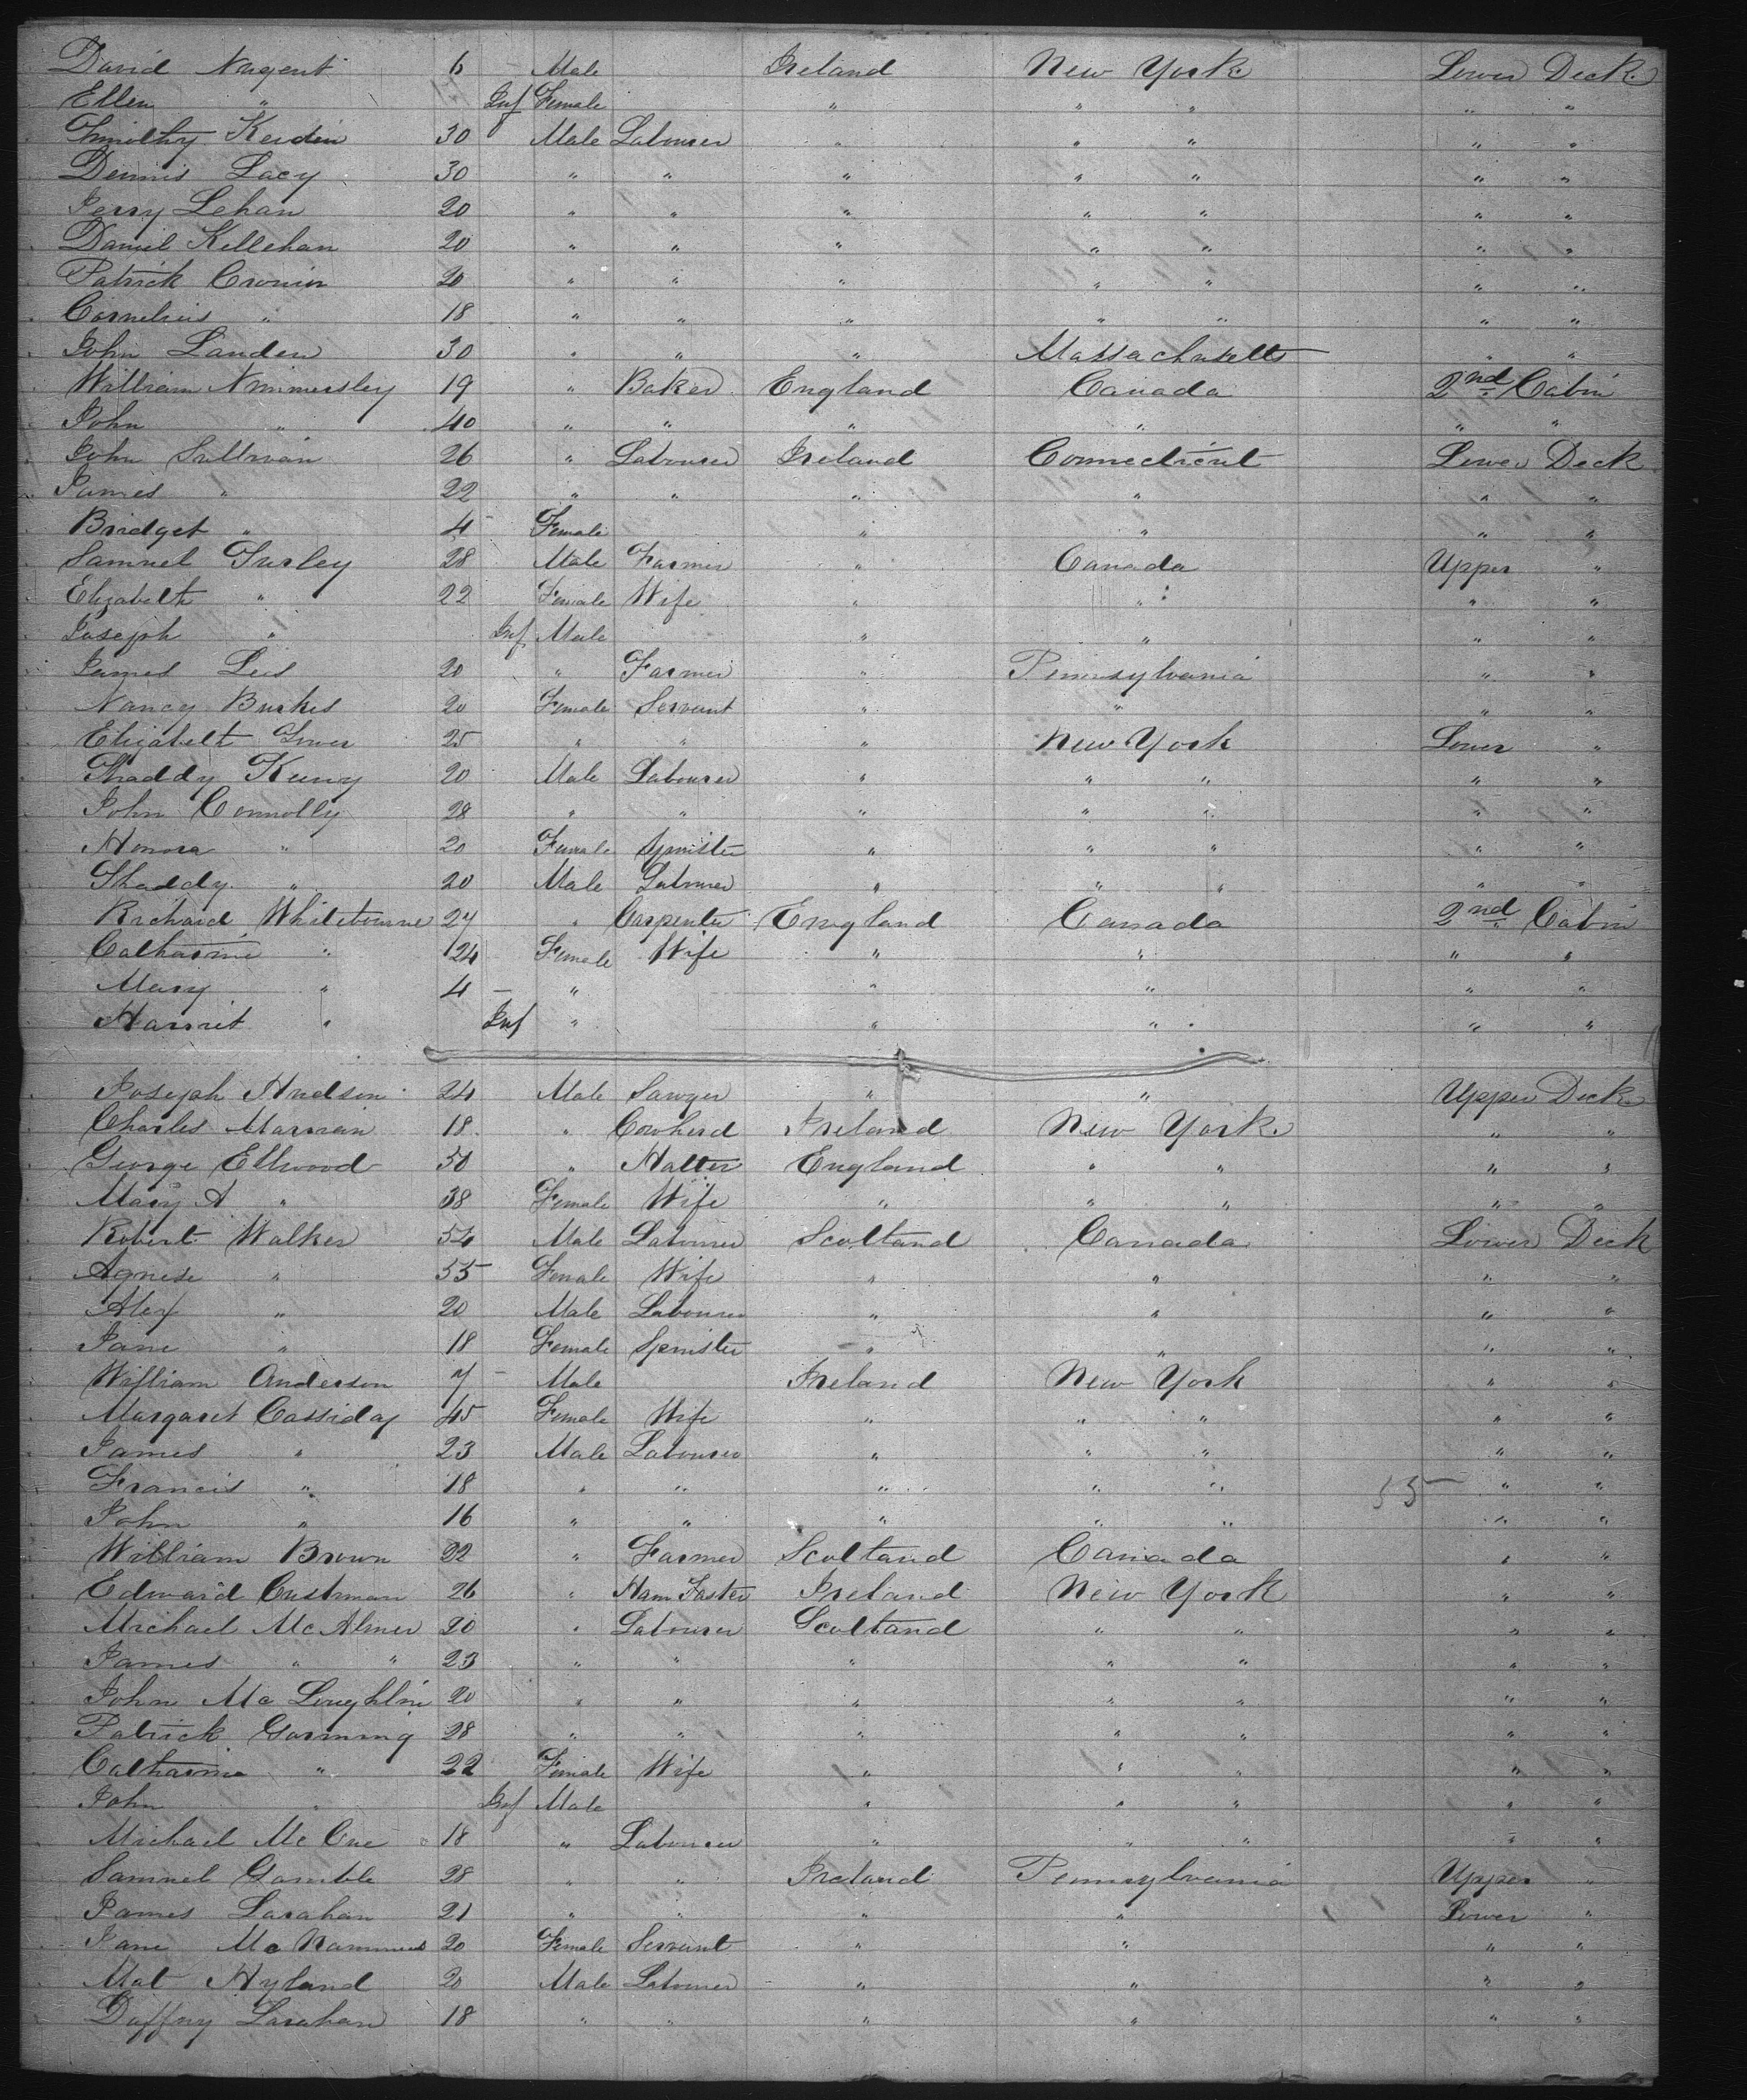 David Nugent 6 - Male Ireland New York Lower Deck
Ellen " Inf Female " " " " "
Timothy Kerdin 30 Male Labourer " " " " "
Dennis Lacy 30 " " " " " " "
Jerry Lehan 20 " " " " " " "
Daniel Kellehan 20 " " " " " " "
Patrick Cronin 20 " " " " " " "
Cornelius " 18 " " " " " " "
John Landen 30 " " " Massachusetts " "
William Nimmersley 19 " Baker England Canada 2nd Cabin
John " 40 " " " " " "
John Sullivan 26 " Labourer Ireland Connecticut Lower Deck
James " 22 " " " " " "
Bridget " 4 - Female " " " "
Samuel Turley 28 Male Farmer " Canada Upper "
Elizabeth " 22 Female Wife " " " "
Joseph " Inf Male " " " "
James Lees 20 " Farmer " Pennsylvania " "
Nancy Burkes 20 Female Servant " " " "
Elizabeth 25 " " " New York Lower "
Thaddy Keeny 20 Male Labourer " " " " "
John Connolly 28 " " " " " " "
Honora " 20 Female Spinster " " " " "
Thaddy " 20 Male Labourer " " " " "
Richard Whitebourne 27 " Carpenter England Canada 2nd Cabin
Catharine " 24 Female Wife " " " "
Mary " 4 - " " " " "
Harriet " Inf " " " " "
Joseph Hudson 24 Male Sawyer " " Upper Deck
Charles Marran 18 " Cowherd Ireland New York " "
George Ellwood 50 " Halter England " " " "
Mary A " 38 Female Wife " " " " "
Robert Walker 54 Male Labourer Scotland Canada Lower Deck
Agnese " 55 Female Wife " " " "
Alex " 20 Male Labourer " " " "
Jane " 18 Female Spinster " " " "
William Anderson 7 - Male Ireland New York " "
Margaret Cassiday 45 Female Wife " " " " "
James " 23 Male Labourer " " " " "
Francis " 18 " " " " " 55 " "
John " 16 " " " " " " "
William Brown 22 " Farmer Scotland Canada " "
Edward Custman 26 " Ham Faster Ireland New York " "
Michael McAlmer 20 " Labourer Scotland " " " "
James " " 23 " " " " " " "
John McLoughlin 20 " " " " " " "
Patrick Gorming 28 " " " " " " "
Catharine " 22 Female Wife " " " " "
John " Inf Male " " " " "
Michael McCue 18 " Labourer " " " " "
Samuel Gamble 28 " " Ireland Pennsylvania Upper "
James Larahan 21 " " " " Lower "
Jane 20 Female Servant " " " "
Mat Hyland 20 Male Labourer " " " "
Duffny Larahan 18 " " " " " "